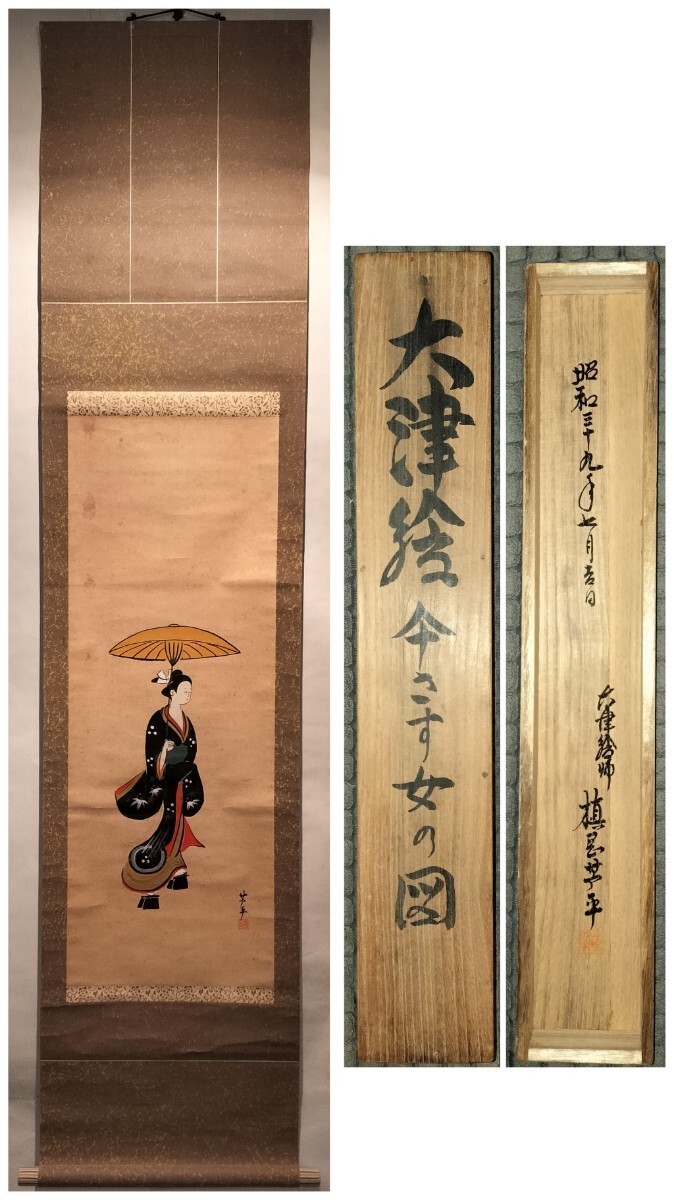 大津絵
仐さす女の図
昭和三十九年七月吉日
大津絵師